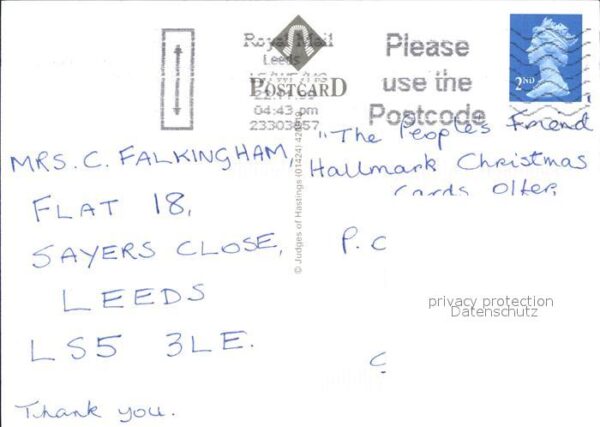 Royal Mail
Leeds
Please
use the
Postcode
POSTCARD
04:43 pm
23303857
2ND
© Judges of Hastings (01424) 420919
MRS. C. FALKINGHAM,
FLAT 18,
SAYERS CLOSE,
LEEDS
LS5 3LE.
Thank you.
"The People's Friend
Hallmark Christmas
Cards Offer,
P.C
C
privacy protection
Datenschutz